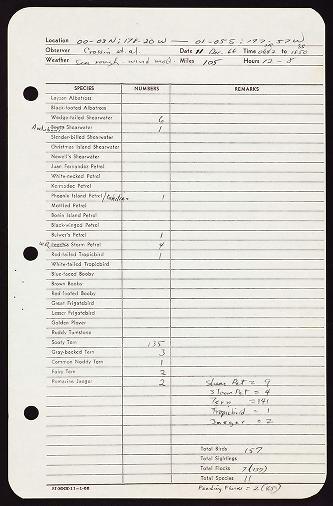 Location 00-03N; 178-20W — 01-05S; 177-57W
Observer Crossin et al. Date 11 Nov. 66 Time 0652 to 1850
Weather Sea rough - wind mod. Miles 105 Hours 12-5
SPECIES NUMBERS REMARKS
Laysan Albatross
Black-footed Albatross
Wedge-tailed Shearwater 6
Sooty Shearwater 1
Slender-billed Shearwater
Christmas Island Shearwater
Newell's Shearwater
Juan Fernandez Petrel
White-necked Petrel
Kermadec Petrel
Phoenix Island Petrel 1
Mottled Petrel
Bonin Island Petrel
Black-winged Petrel
Bulwer's Petrel 1
Storm Petrel 4
Red-tailed Tropicbird 1
White-tailed Tropicbird
Blue-faced Booby
Brown Booby
Red-footed Booby
Great Frigatebird
Lesser Frigatebird
Golden Plover
Ruddy Turnstone
Sooty Tern 135
Gray-backed Tern 3
Common Noddy Tern 1
Fairy Tern 2
Pomarine Jaeger 2
Shear Pet = 9
Storm Pet = 4
Tern = 141
Tropicbird = 1
Jaeger = 2
Total Birds 157
Total Sightings
Total Flocks 7 (137)
Total Species 11
Feeding Flocks = 2 (85)